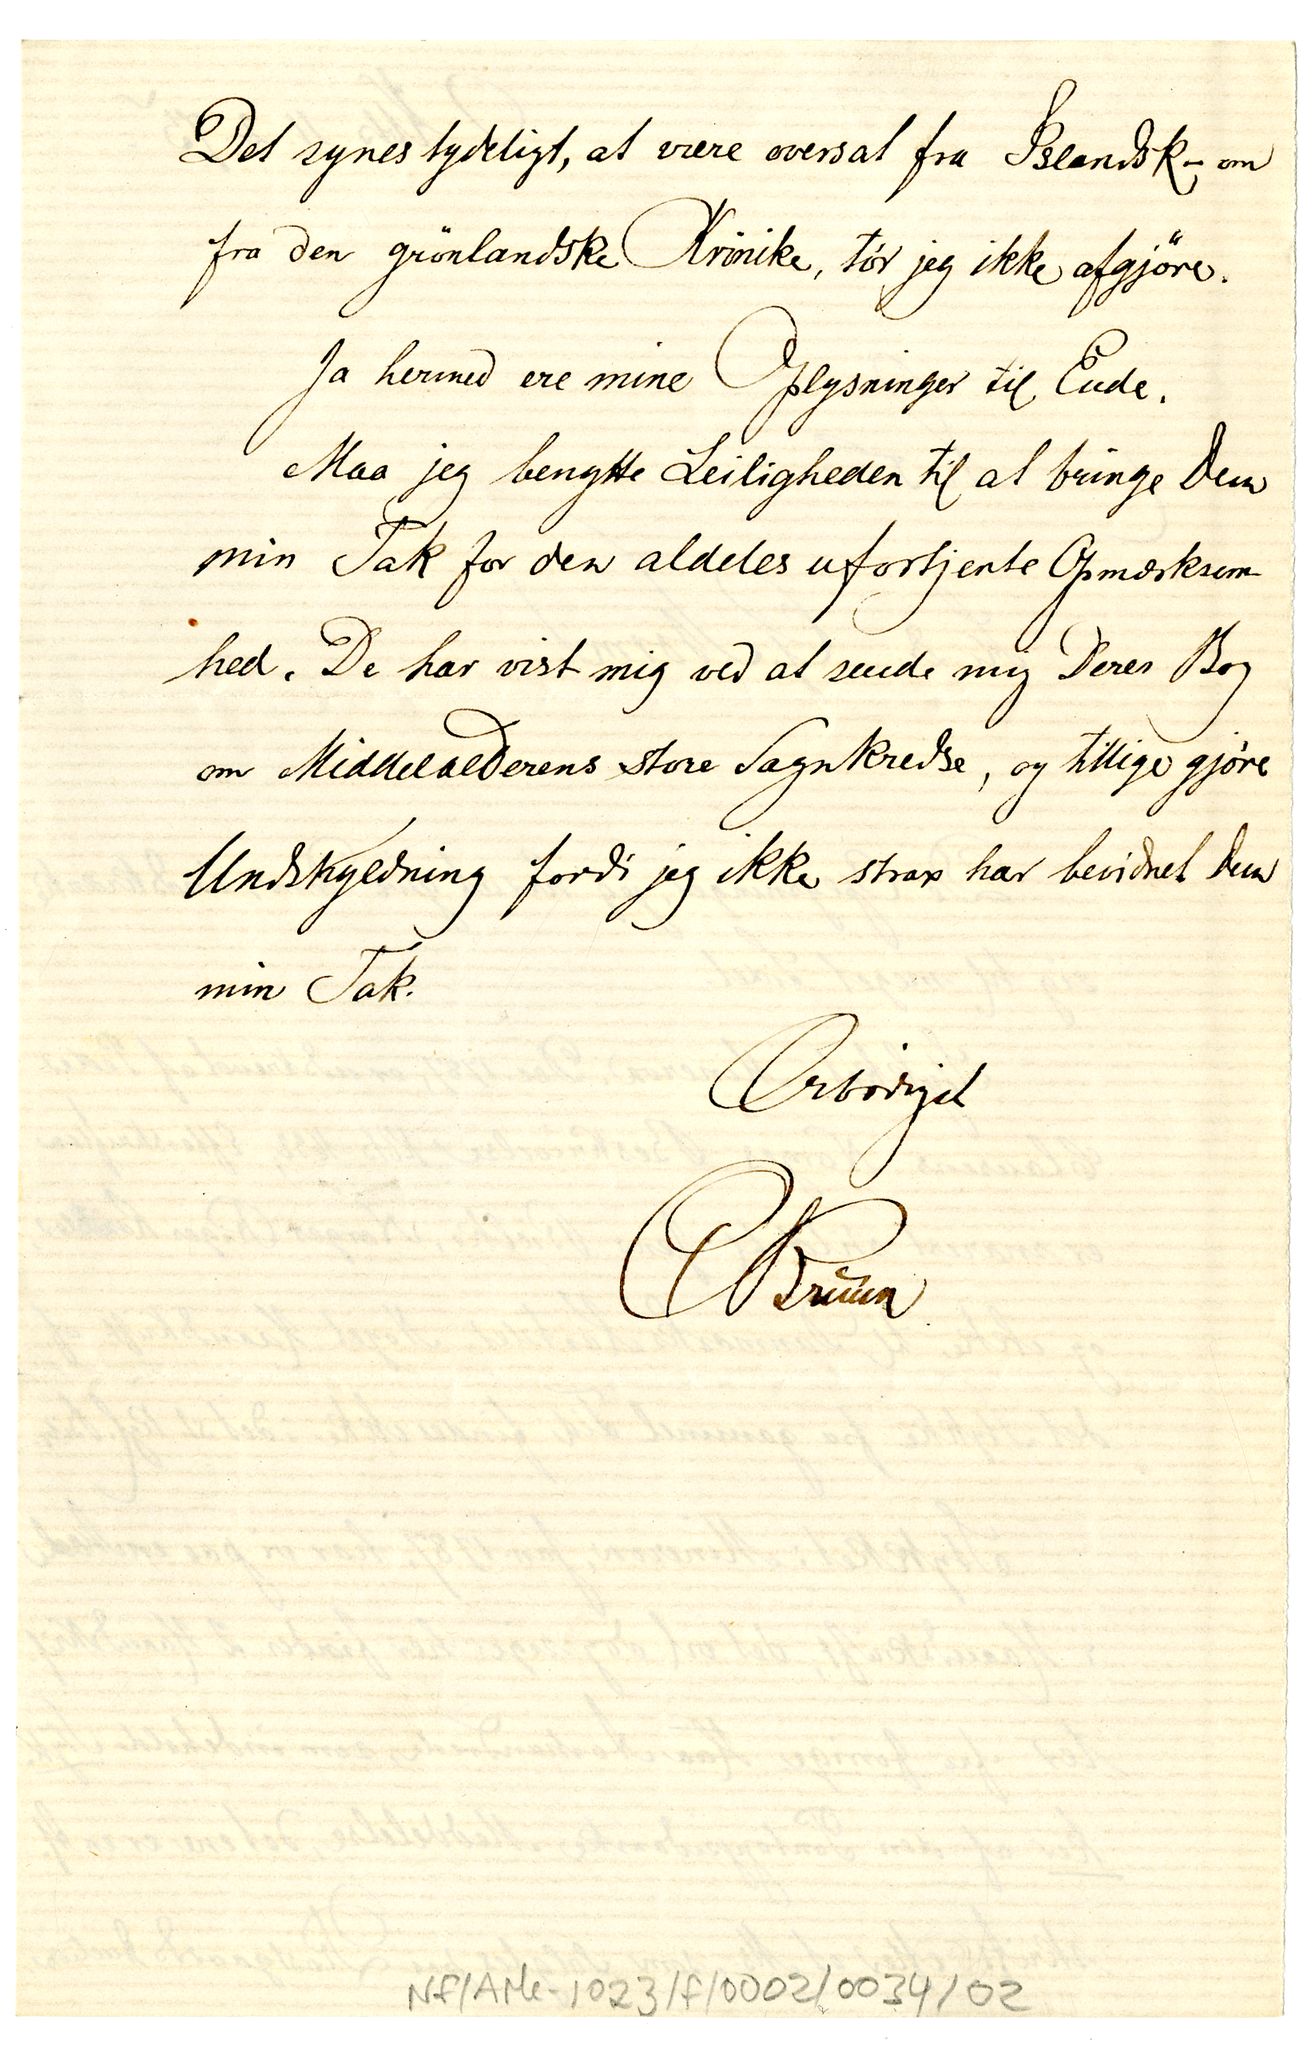 Det synes tydeligt, at være oversat fra Islandsk – om
fra den grönlandske Krönike, tör jeg ikke afgjöre.
Ja hermed ere mine Oplysninger til Ende.
Maa jeg benytte Leiligheden til at bringe Dem
min Tak for den aldeles ufortjente Opmærksom-
hed. De har vist mig ved at sende mig Deres Bog
om Middelalderens store Sagnkredse, og tillige gjöre
Undskyldning fordi jeg ikke strax har bevidnet Dem
min Tak.
Ærbödigst
C Bruun
NF/AMc-1023/f/0002/0034/02